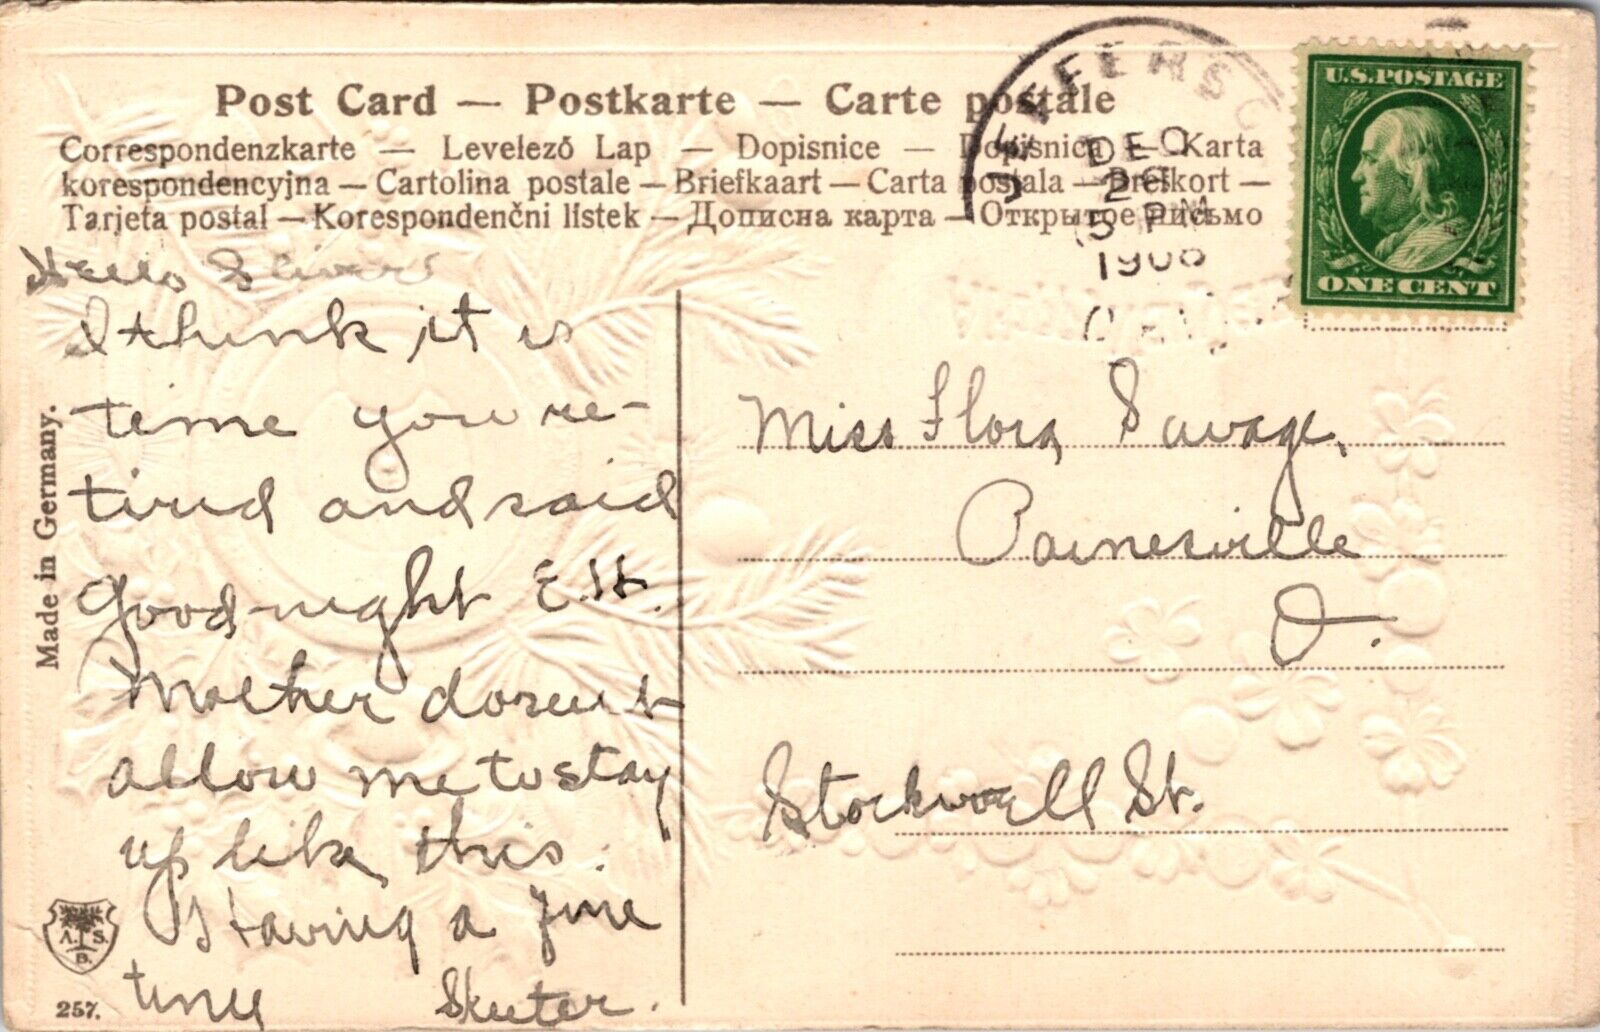 Post Card — Postkarte — Carte postale
Correspondenzkarte — Levelező Lap — Dopisnice — Dopisnica — Karta
korespondencyjna — Cartolina postale — Briefkaart — Carta postala — Brefkort —
Tarjeta postal — Korespondenčni listek — Дописна карта — Открытое письмо
JEFFERSO
DEC
5 PM
1908
U.S. POSTAGE
ONE CENT
Hello
I think it is
time you re-
tired and said
Good-night E.H.
Mother doesn't
allow me to stay
up like this.
Having a fine
time Skeeter.
Miss Flora Savage,
Painesville
O.
Stockwell St.
Made in Germany.
A. S.
B.
257.